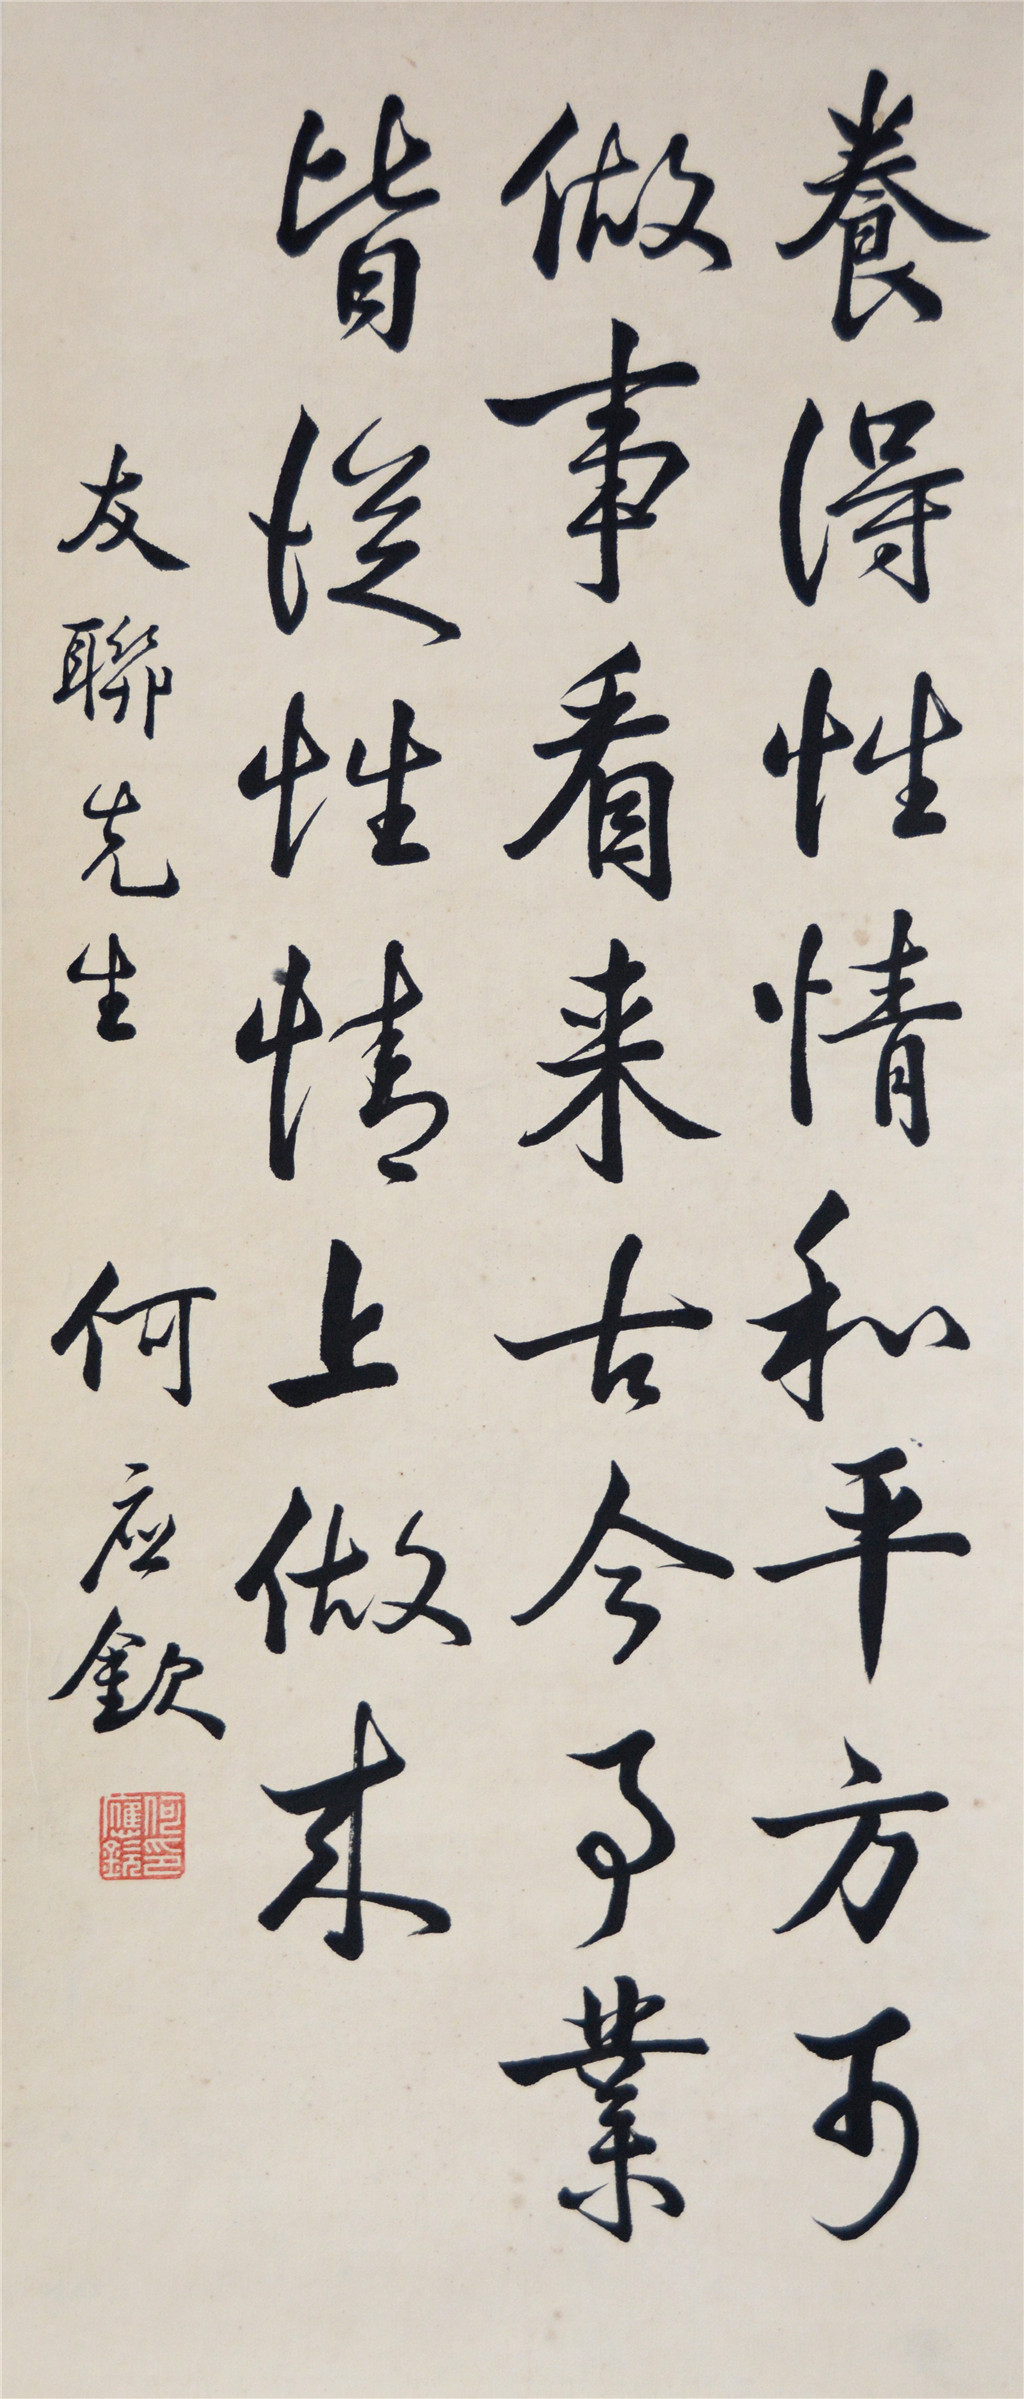 養得性情和平方可
做事看来古今事業
皆從性情上做来
友聯先生 何应欽
何應欽印